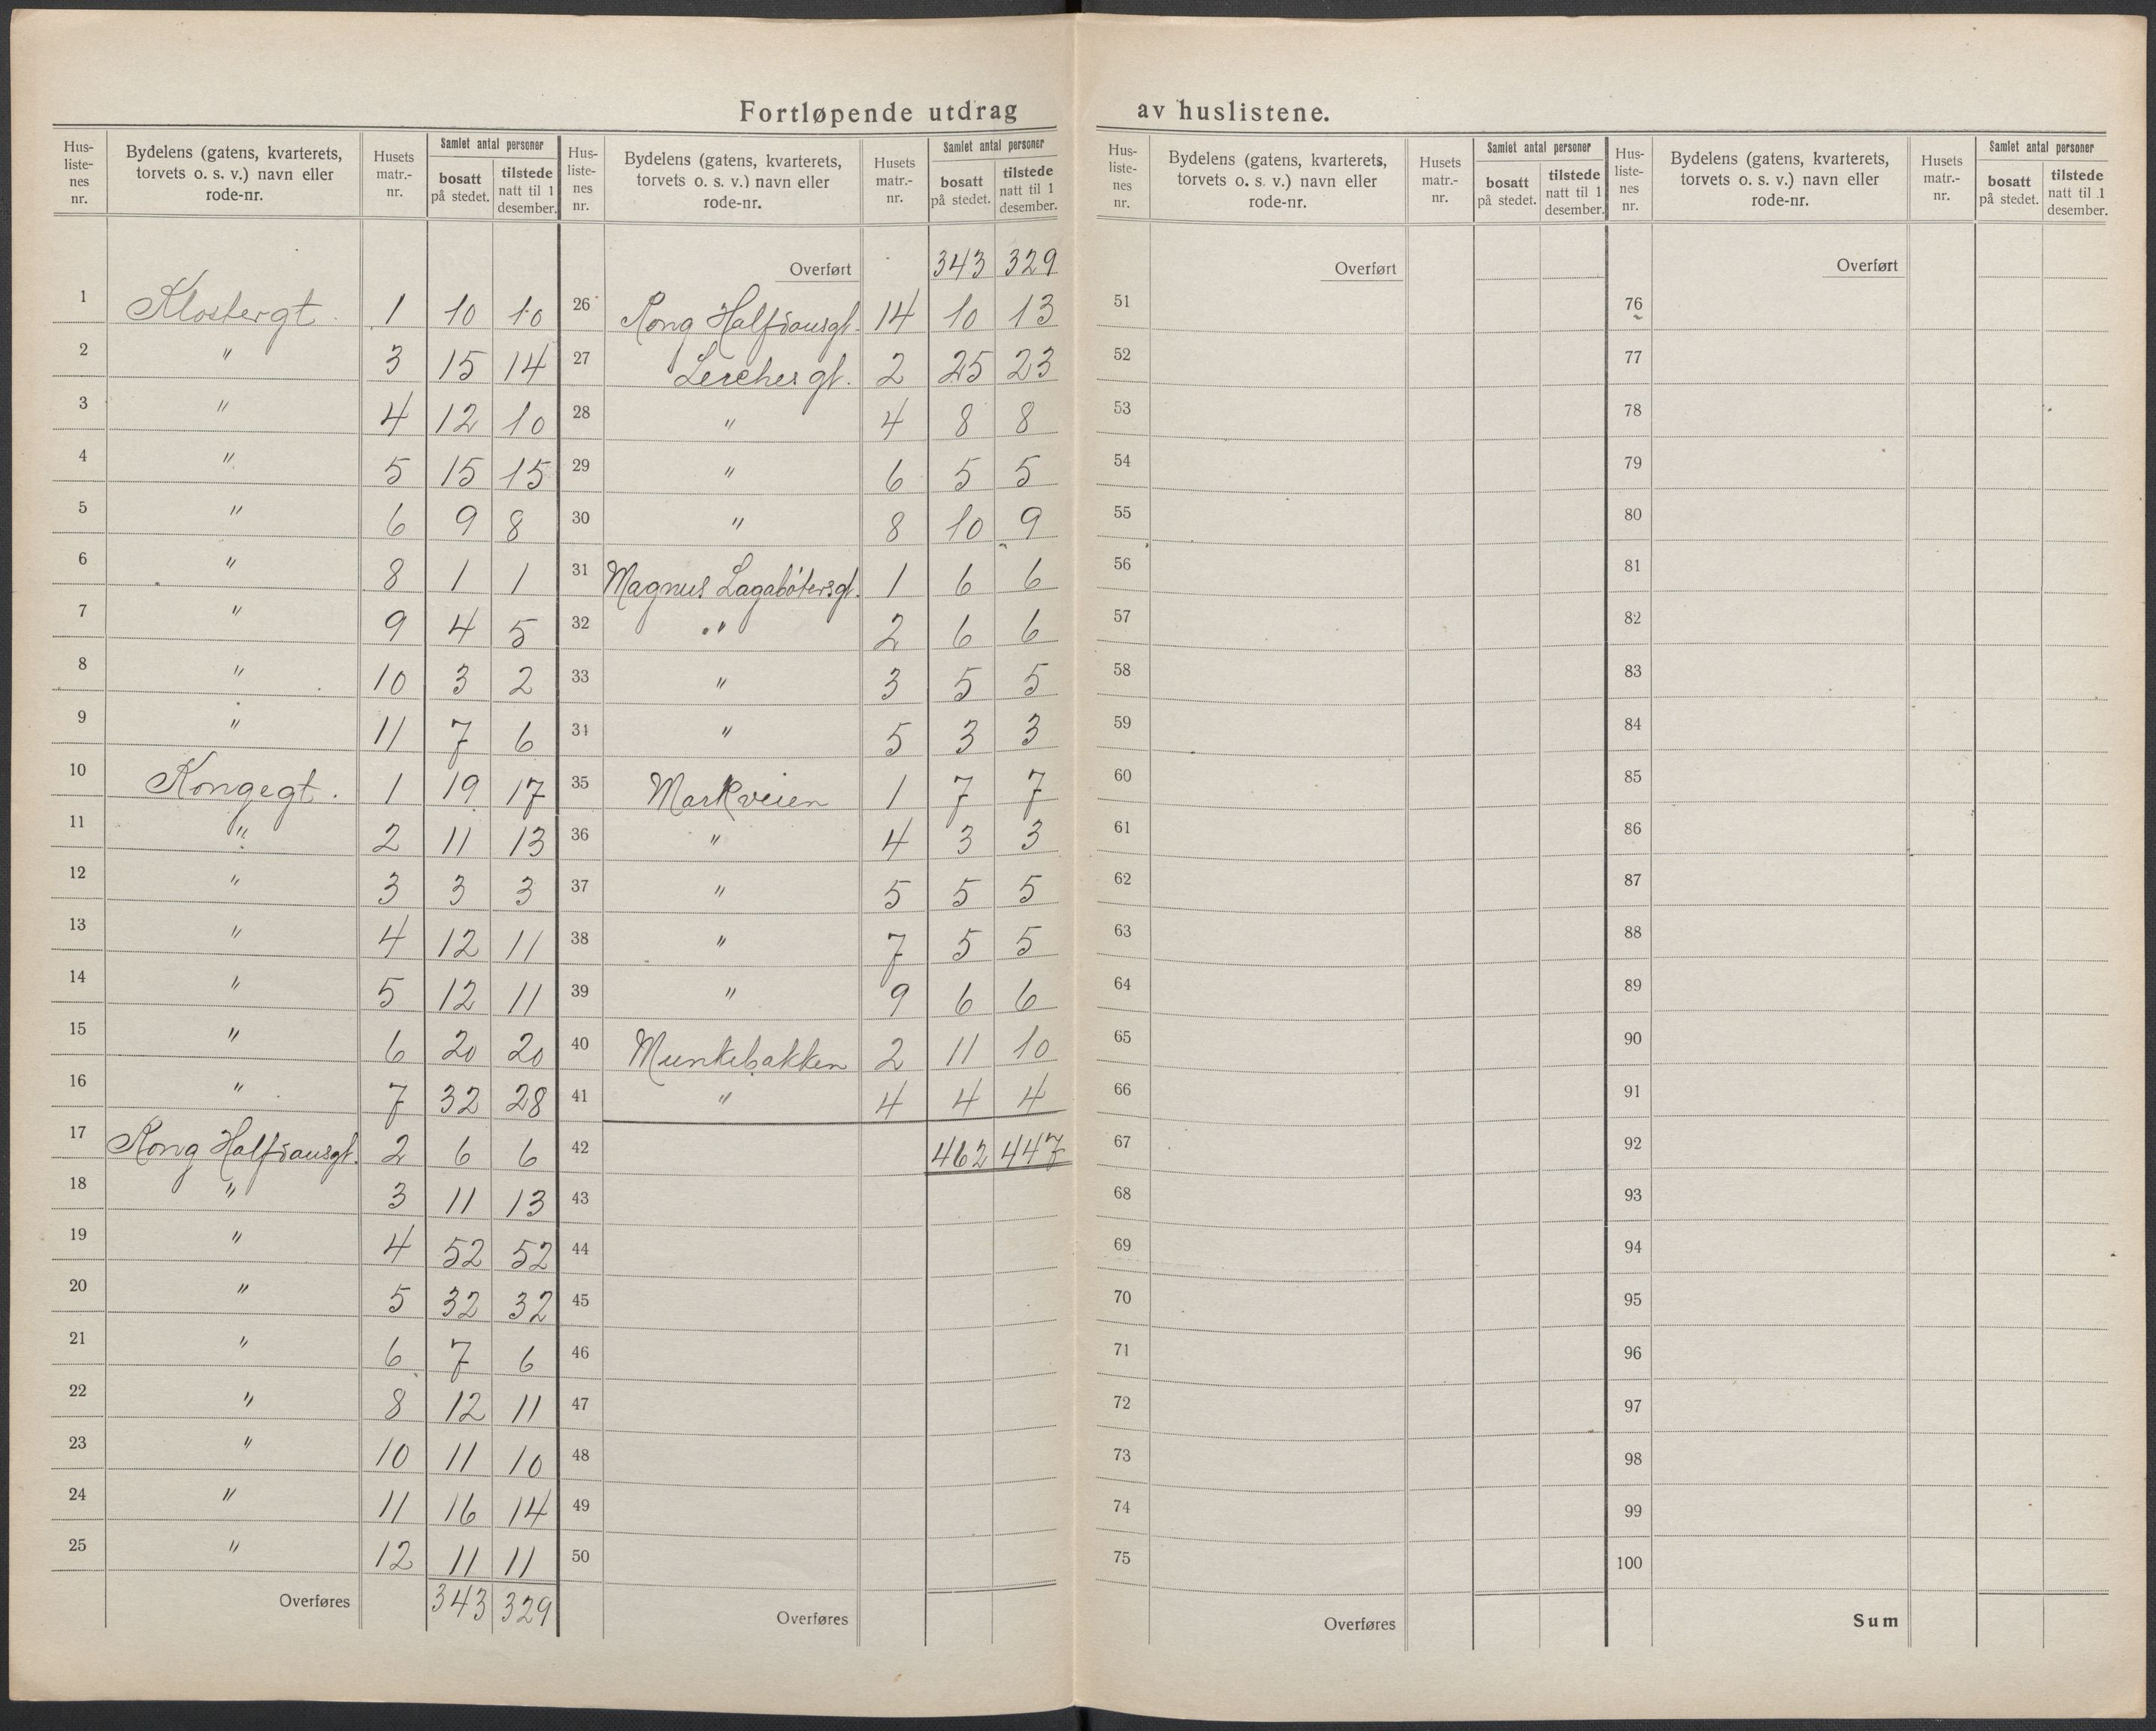 Fortløpende utdrag av huslistene.
Hus-listenes nr. | Bydelens (gatens, kvarterets, torvets o. s. v.) navn eller rode-nr. | Husets matr.-nr. | Samlet antal personer bosatt på stedet. | tilstede natt til 1 desember.
1 Klostergt. 1 10 10
2 " 3 15 14
3 " 4 12 10
4 " 5 15 15
5 " 6 9 8
6 " 8 1 1
7 " 9 4 5
8 " 10 3 2
9 " 11 7 6
10 Kongegt. 1 19 17
11 " 2 11 13
12 " 3 3 3
13 " 4 12 11
14 " 5 12 11
15 " 6 20 20
16 " 7 32 28
17 Kong Halfdansgt. 2 6 6
18 " 3 11 13
19 " 4 52 52
20 " 5 32 32
21 " 6 7 6
22 " 8 12 11
23 " 10 11 10
24 " 11 16 14
25 " 12 11 11
Overføres 343 329
Hus-listenes nr. | Bydelens (gatens, kvarterets, torvets o. s. v.) navn eller rode-nr. | Husets matr.-nr. | Samlet antal personer bosatt på stedet. | tilstede natt til 1 desember.
Overført 343 329
26 Kong Halfdansgt. 14 10 13
27 Lerchesgt. 2 25 23
28 " 4 8 8
29 " 6 5 5
30 " 8 10 9
31 Magnus Lagabøtersgt. 1 6 6
32 " 2 6 6
33 " 3 5 5
34 " 5 3 3
35 Markveien 1 7 7
36 " 4 3 3
37 " 5 5 5
38 " 7 5 5
39 " 9 6 6
40 Munkebakken 2 11 10
41 " 4 4 4
42 462 447
43
44
45
46
47
48
49
50
Overføres
Hus-listenes nr. | Bydelens (gatens, kvarterets, torvets o. s. v.) navn eller rode-nr. | Husets matr.-nr. | Samlet antal personer bosatt på stedet. | tilstede natt til 1 desember.
Overført
51
52
53
54
55
56
57
58
59
60
61
62
63
64
65
66
67
68
69
70
71
72
73
74
75
Overføres
Hus-listenes nr. | Bydelens (gatens, kvarterets, torvets o. s. v.) navn eller rode-nr. | Husets matr.-nr. | Samlet antal personer bosatt på stedet. | tilstede natt til 1 desember.
Overført
76
77
78
79
80
81
82
83
84
85
86
87
88
89
90
91
92
93
94
95
96
97
98
99
100
Sum